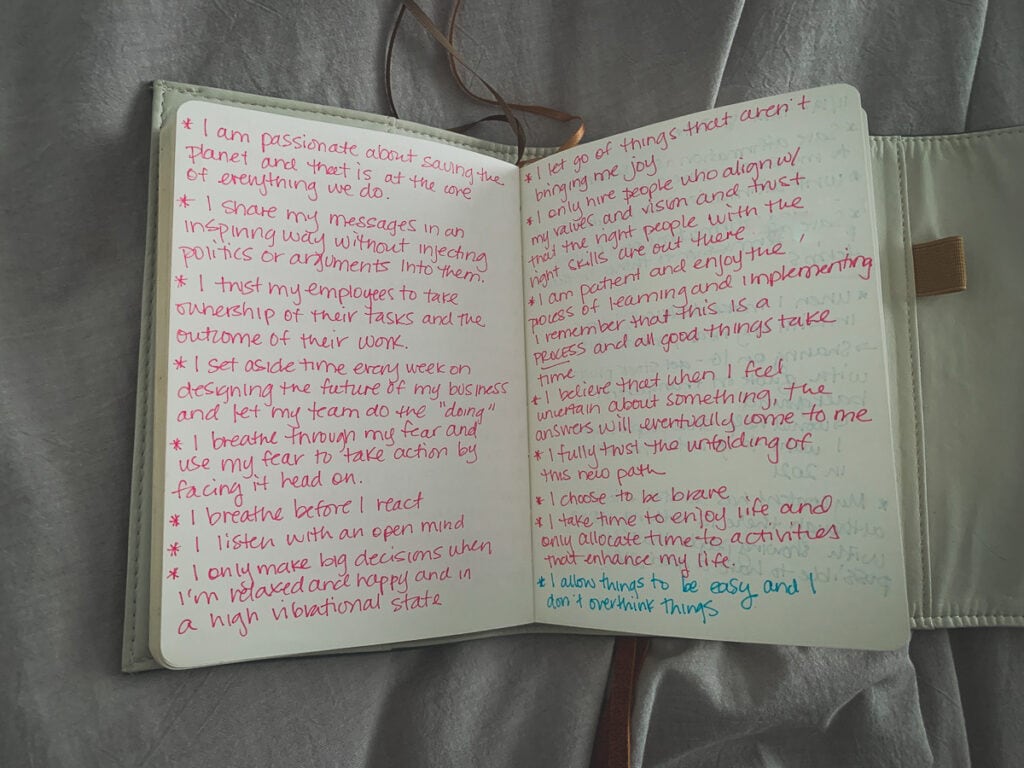 * I am passionate about saving the
planet and that is at the core
of everything we do.
* I share my messages in an
inspiring way without injecting
politics or arguments into them.
* I trust my employees to take
ownership of their tasks and the
outcome of their work.
* I set aside time every week on
designing the future of my business
and let my team do the "doing"
* I breathe through my fear and
use my fear to take action by
facing it head on.
* I breathe before I react
* I listen with an open mind
* I only make big decisions when
I'm relaxed and happy and in
a high vibrational state
* I let go of things that aren't
bringing me joy
* I only hire people who align w/
my values and vision and trust
that the right people with the
right skills are out there
* I am patient and enjoy the
process of learning and implementing
i remember that this is a
process and all good things take
time
* I believe that when I feel
uncertain about something, the
answers will eventually come to me
* I fully trust the unfolding of
this new path
* I choose to be brave
* I take time to enjoy life and
only allocate time to activities
that enhance my life.
* I allow things to be easy and I
don't overthink things